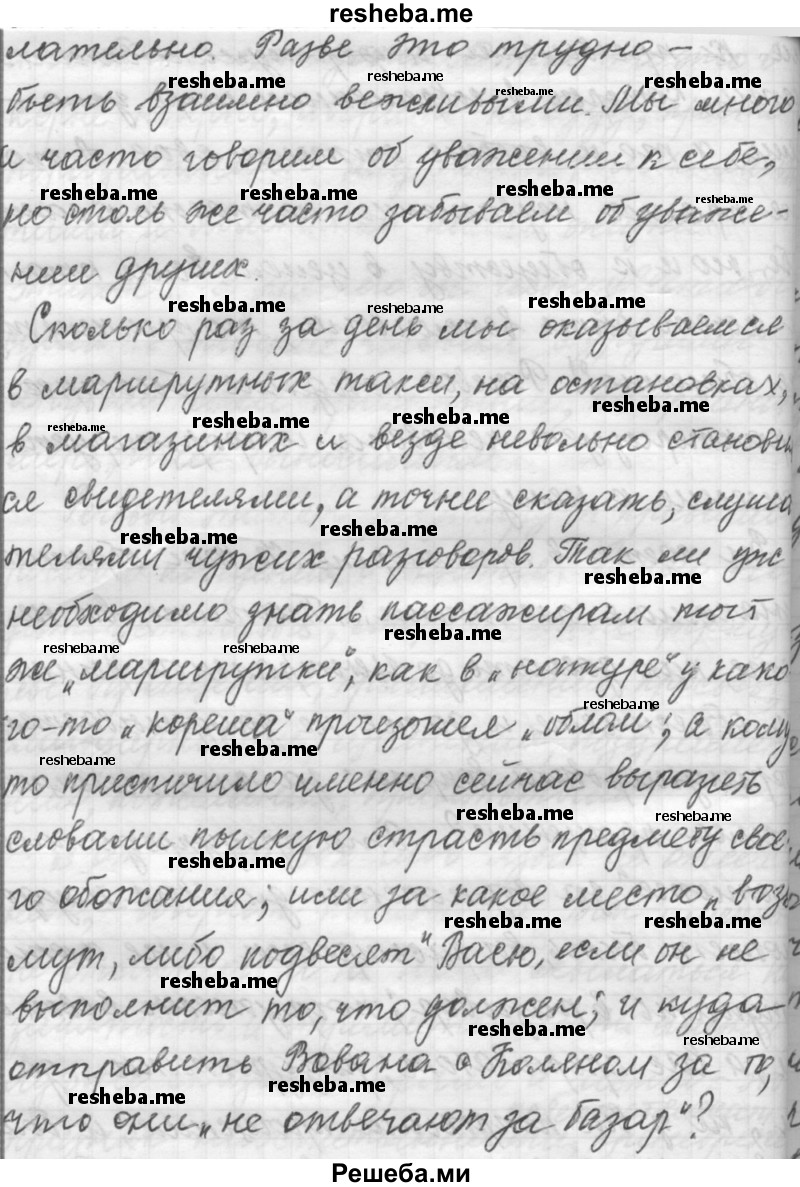 resheba.me
лательно. Разве это трудно –
быть взаимно вежливыми. Мы много
и часто говорим об уважении к себе,
но столь же часто забываем об уваже-
нии других.
Сколько раз за день мы оказываемся
в маршрутных такси, на остановках,
в магазинах и везде невольно станови
ся свидетелями, а точнее сказать, слуша
телями чужих разговоров. Так ли уж
необходимо знать пассажирам той
же „маршрутки", как в „натуре" у како
го-то „кореша" произошел „облом"; а кому
то приспичило именно сейчас выразить
словами пылкую страсть предмету свое
го обожания; или за какое место „возь
мут, либо подвесят" Васю, если он не
выполнит то, что должен; и куда
отправить Вована с Коляном за то,
что они „не отвечают за базар"?
Решеба.ми